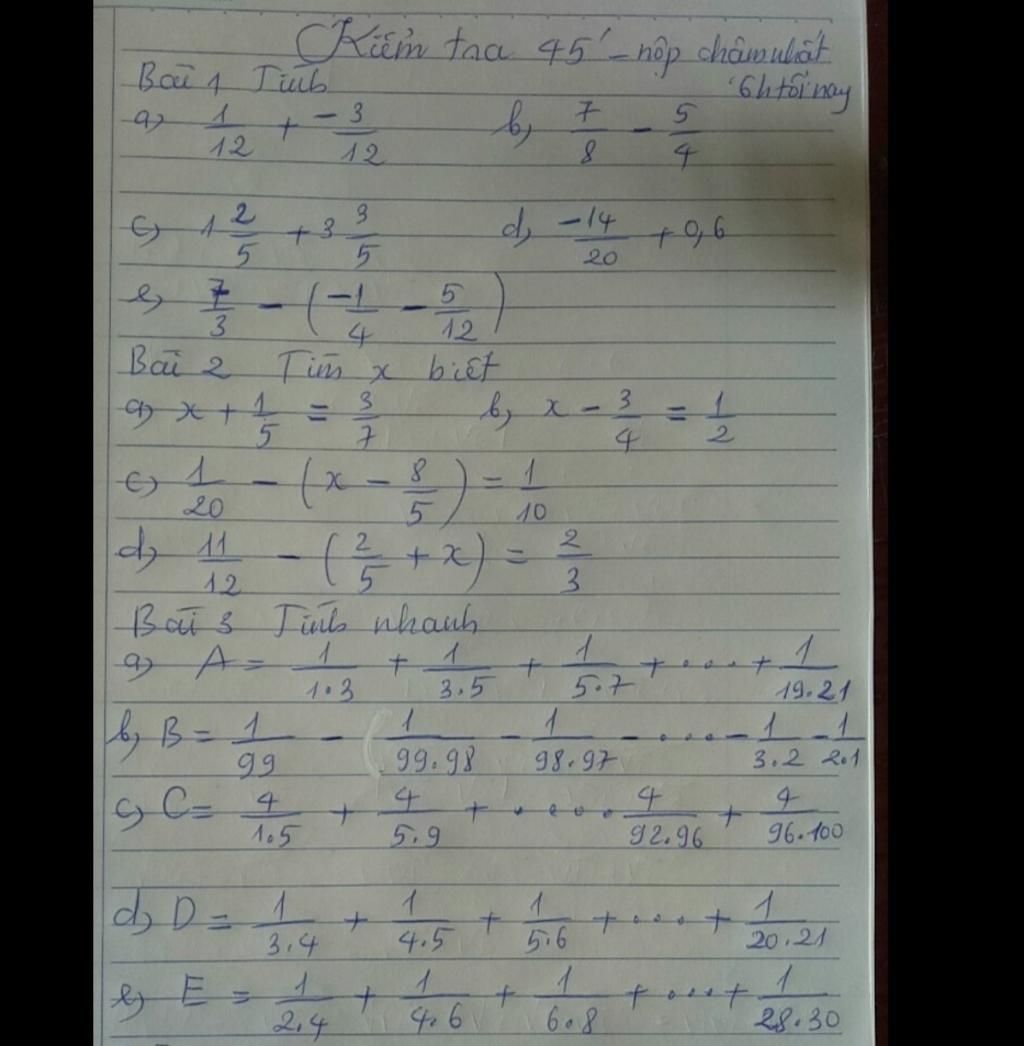 Kiểm tra 45' - nộp chậm nhất
6h tối nay
Bài 1 Tính
a, 1/12 + -3/12 b, 7/8 - 5/4
c, 1 2/5 + 3 3/5 d, -14/20 + 0,6
e, 7/3 - (-1/4 - 5/12)
Bài 2 Tìm x biết
a, x + 1/5 = 3/7 b, x - 3/4 = 1/2
c, 1/20 - (x - 8/5) = 1/10
d, 11/12 - (2/5 + x) = 2/3
Bài 3 Tính nhanh
a, A = 1/1.3 + 1/3.5 + 1/5.7 + .... + 1/19.21
b, B = 1/99 - 1/99.98 - 1/98.97 - .... - 1/3.2 - 1/2.1
c, C = 4/1.5 + 4/5.9 + ..... 4/92.96 + 4/96.100
d, D = 1/3.4 + 1/4.5 + 1/5.6 + .... + 1/20.21
e, E = 1/2.4 + 1/4.6 + 1/6.8 + .... + 1/28.30